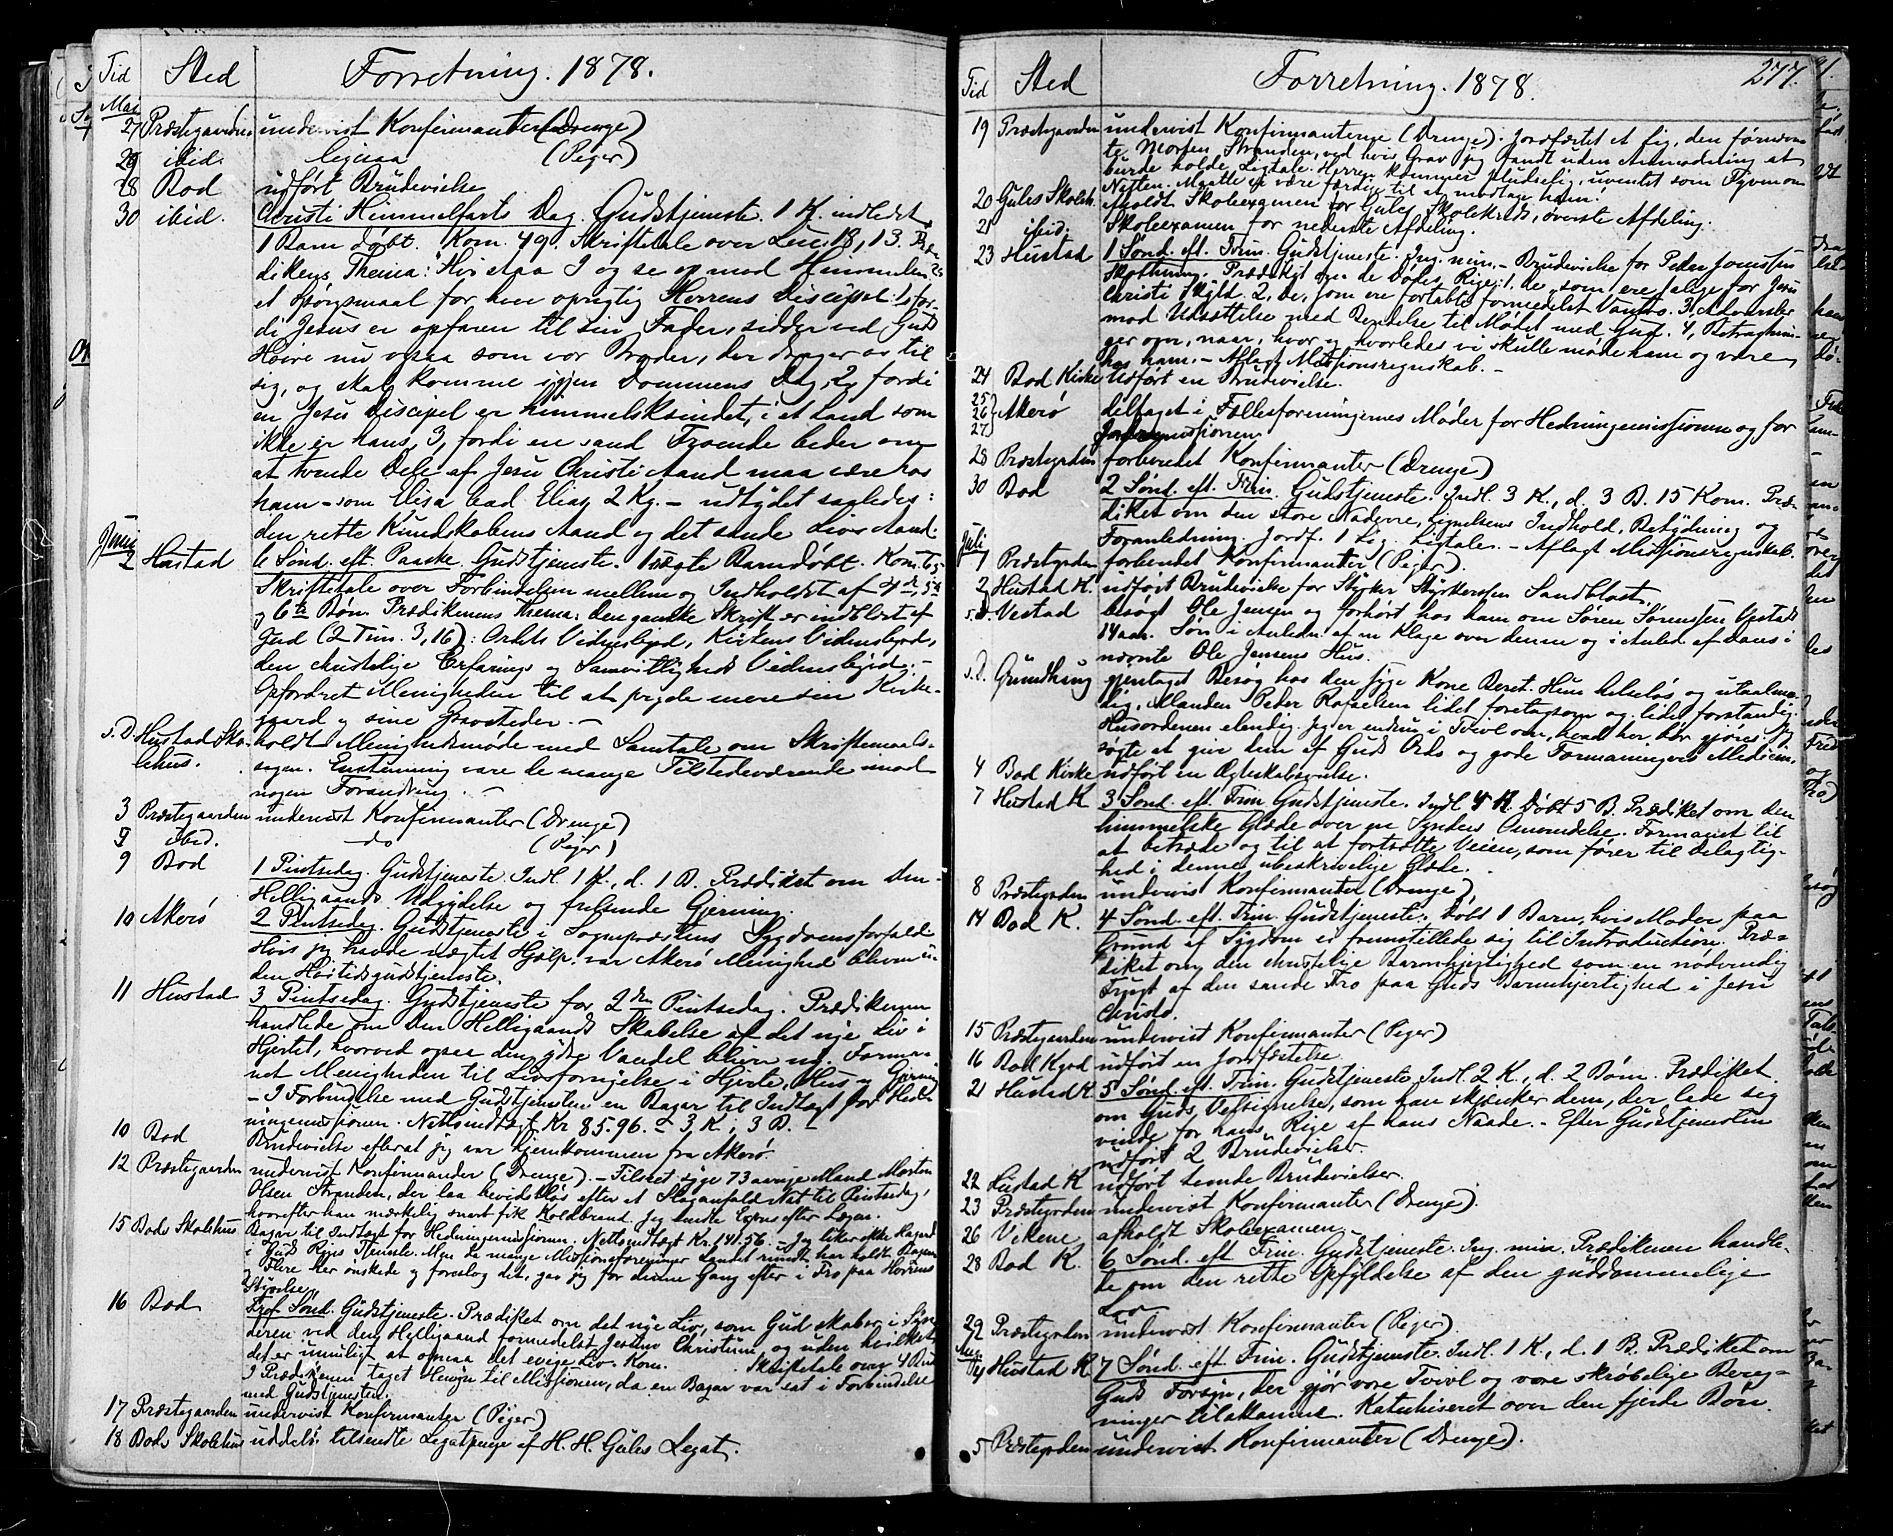 Tid Sted Forretning. 1878.
Mai
27 Præstegaarden undervist Konfirmanter (Drenge)
29 ibid. ligesaa (Piger)
28 Bod udført Brudevielse
30 ibid. Christi Himmelfarts Dag. Gudstjeneste. 1 K. indledet
1 Barn døbt. Kom. 49. Skriftetale over Luc. 18, 13. Præ-
dikens Thema: "Hvi staa I og se op mod Himmelen"
et Spørgsmaal for hver oprigtig Herrens Discipel: 1, for-
di Jesus er opfaren til sin Fader, sidder ved Guds
Høire nu ogsaa som vor Broder, der drager os til
sig, og skal komme igjen Dommens Dag, 2, fordi
en Jesu Discipel er himmelsksindet, i et Land som
ikke er hans, 3, fordi en sand Troende beder om
at tvende Dele af Jesu Christi Aand maa være hos
ham – som Elisa bad Elias 2 Kg. – udtydet saaledes:
den rette Kundskabens Aand og det sande Livs Aand.
Juni
2 Hustad 6 Sønd. eft. Paaske. Gudstjeneste. 1 uægte Barn døbt. Kom. 65
Skriftetale over Forbindelsen mellem og Indholdet af 4de, 5te
og 6te Bøn. Prædikenens Thema: Den ganske Skrift er indblæst af
Gud (2 Tim. 3, 16): Ordets Vidnesbyrd, Kirkens Vidnesbyrd,
den christelige Erfarings og Samvittigheds Vidnesbyrd. –
Opfordret Menigheden til at pryde mere sin Kirke-
gaard og sine Gravsteder. –
s. D. Hustad Sko- holdt Menighedsmøde med Samtale om Skriftemaals-
lehus. sagen. Enstemmig vare de mange Tilstedeværende mod
nogen Forandring. –
3 Præstegaarden undervist Konfirmanter (Drenge)
ibid. do (Piger)
9 Bod 1 Pintsedag. Gudstjeneste. Indl. 1 K., d. 1 B. Prædiket om den
Helligaands Udgydelse og frelsende Gjerning.
10 Akerø 2 Pintsedag. Gudstjeneste i Sognepræstens Sygdomsforfald
Hvis jeg havde nægtet Hjælp var Akerø Menighed bleven u-
den Høitidsgudstjeneste.
11 Hustad 3 Pintsedag. Gudstjeneste for 2den Pintsedag. Prædikenen
handlede om Den Helligaands Skabelse af det nye Liv i
Hjertet, hvorved ogsaa den ydre Vandel bliver ny. Forma-
net Menigheden til Livsfornyelse i Hjerte, Hus og Gjerning
– I Forbindelse med Gudstjenesten en Bazar til Indtægt for Hed-
ningemissionen. Nettoindtægt Kr 85.96. 3 K.; 3 B. –
10 Bod Brudevielse efterat jeg var hjemkommen fra Akerø.
12 Præstegaarden undervist Konfirmander (Drenge). – Tilseet syge 73 aarige Mand Morten
Olsen Stranden, der laa bevidstløs efter et Slaganfald Nat til Pintsedag,
hvorefter han mærkelig snart fik Koldbrand. Jeg sendte Expres efter Lægen.
15 Bods Skolehus Bazar til Indtægt for Hedningemissionen. Nettoindtægt Kr. 141.56. – Jeg liker ikke Bazarer
i Guds Riges Tjeneste. Men da mange Missionsforeninger Landet rundt har holdt Bazarer
og Flere her ønskede og foreslog det, gav jeg for denne Gang efter i Tro paa Herrens
Styrelse.
16 Bod Tref. Sønd. Gudstjeneste. Prædiket om det nye Liv, som Gud skaber i Syn-
deren ved den Helligaand formedelst Jesum Christum, og uden hvilket
det er umuligt at opnaa det evige Liv. Kom. Skriftetale over 4 Bud
I Prædikenen taget Hensyn til Missionen, da en Bazar var sat i Forbindelse
med Gudstjenesten.
17 Præstegaarden undervist Konfirmanter (Piger)
18 Bods Skolehus uddelt tilsendte Legatpenge af H. H. Gules Legat.
Tid Sted Forretning. 1878. 277.
19 Præstegaarden undervist Konfirmanterne (Drenge). Jordfæstet et Lig, den førnævn-
te Morten Stranden, ved hvis Grav jeg fandt uden Anmodning at
burde holde Ligtale. Herren kommer pludselig, uventet som Tyven om
Natten. Maatte vi være færdige til at modtage ham!
20 Gules Skoleh. afholdt Skoleexamen for Gules Skolekreds, øverste Afdeling.
21 ibid. Skoleexamen for nederste Afdeling.
23 Hustad 1 Sønd. eft. Trin. Gudstjeneste. Ing. min. – Brudevielse for Peder Jonssen
Skothning. Prædiket om de Dødes Rige: 1, de, som ere salige for Jesu
Christi Skyld. 2, de, som ere fortabte formedelst Vantro. 3, Advarsler
mod Udsættelse med Beredelse til Mødet med Gud. 4, Betragtnin-
ger over, naar, hvor og hvorledes vi skulle møde ham og være
hos ham. – Aflagt Missionsregnskab. –
24 Bod Kirke Udført en Brudevielse.
25
26 Akerø deltaget i Fællesforeningernes Møder for Hedningemissionen og for
27 Indremissionen.
28 Præstegrden forberedet Konfirmanter (Drenge)
30 Bod 2 Sønd. eft. Trin. Gudstjeneste. Indl. 3 K., d. 3 B. 15 Kom. Præ-
diket om den store Nadvere, Lignelsens Indhold, Betydning og
Foranledning. Jordf. 1 Lig. Ligtale. – Aflagt Missionsregnskab.
Juli
1 Præstegrden forberedet Konfirmanter (Piger).
2 Hustad K. udført Brudevielse for Styrker Styrkerssen Sandblast.
s. D. Vestad besøgt Ole Jensen og forhørt hos ham om Søren Sørenssen Vestads
14 aar. Søn i Anledn. af en Klage over denne og i Anled. af Dans i
nævnte Ole Jensens Hus.
s. D. Grundhaug gjentaget Besøg hos den syge Kone Beret. Hun hélseløs og utaalmo-
dig, Manden Peder Rafaelsen lidet foretagsom og lidet forstandig.
Husordenen elendig. Jeg er endnu i Tvivl om, hvad her bør gjøres. Jeg
søgte at give dem af Guds Ords og gode Formaningers Medicin.
4 Bod Kirke udført en Ægteskabsvielse.
7 Hustad K 3 Sønd. eft. Trin. Gudstjeneste. Indl. 4 K. Døbt 5 B. Prædiket om den
himmelske Glæde over en Synders Omvendelse. Formanet til
at betræde og til at fortsætte Veien, som fører til Delagtig-
hed i denne ubeskrivelige Glæde.
8 Præstegrden undervis Konfirmanter (Drenge)
14 Bod K. 4 Sønd. eft. Trin. Gudstjeneste. Døbt 1 Barn, hvis Moder paa
Grund af Sygdom ei fremstillede sig til Introduction. Præ-
diket om den christelige Barmhjertighed som en nødvendig
Frugt af den sande Tro paa Guds Barmhjertighed i Jesu
Christo.
15 Præstegaarden undervist Konfirmanter (Piger)
16 Bod Kgrd udført en Jordfæstelse.
21 Hustad K 5 Sønd. eft. Trin. Gudstjeneste. Indl. 2 K., d. 2 Børn. Prædiket
om Guds Velsignelse, som han skjænker dem, der lade sig
vinde for hans Rige af hans Naade. – Efter Gudstjenesten
udført 2 Brudevielser.
22 Hustad K udført tvende Brudevielser.
23 Præstegrden undervist Konfirmanter (Drenge).
26 Vikene afholdt Skoleexamen.
28 Bod K. 6 Sønd. eft. Trin. Gudstjeneste. Ing. min. Prædikenen handle-
de om den rette Opfyldelse af den guddommelige
Lov.
29 Præstegrden undervist Konfirmanter (Piger).
Aug.
4 Hustad K 7 Sønd. eft. Trin. Gudstjeneste. Indl. 1 K., d. 1 B. Prædiket om
Guds Forsyn, der gjør vore Tvivl og vore skrøbelige Bereg-
ninger tilskamme. Katechiseret over den fjerde Bøn.
5 Præstegrden undervist Konfirmanter (Drenge).